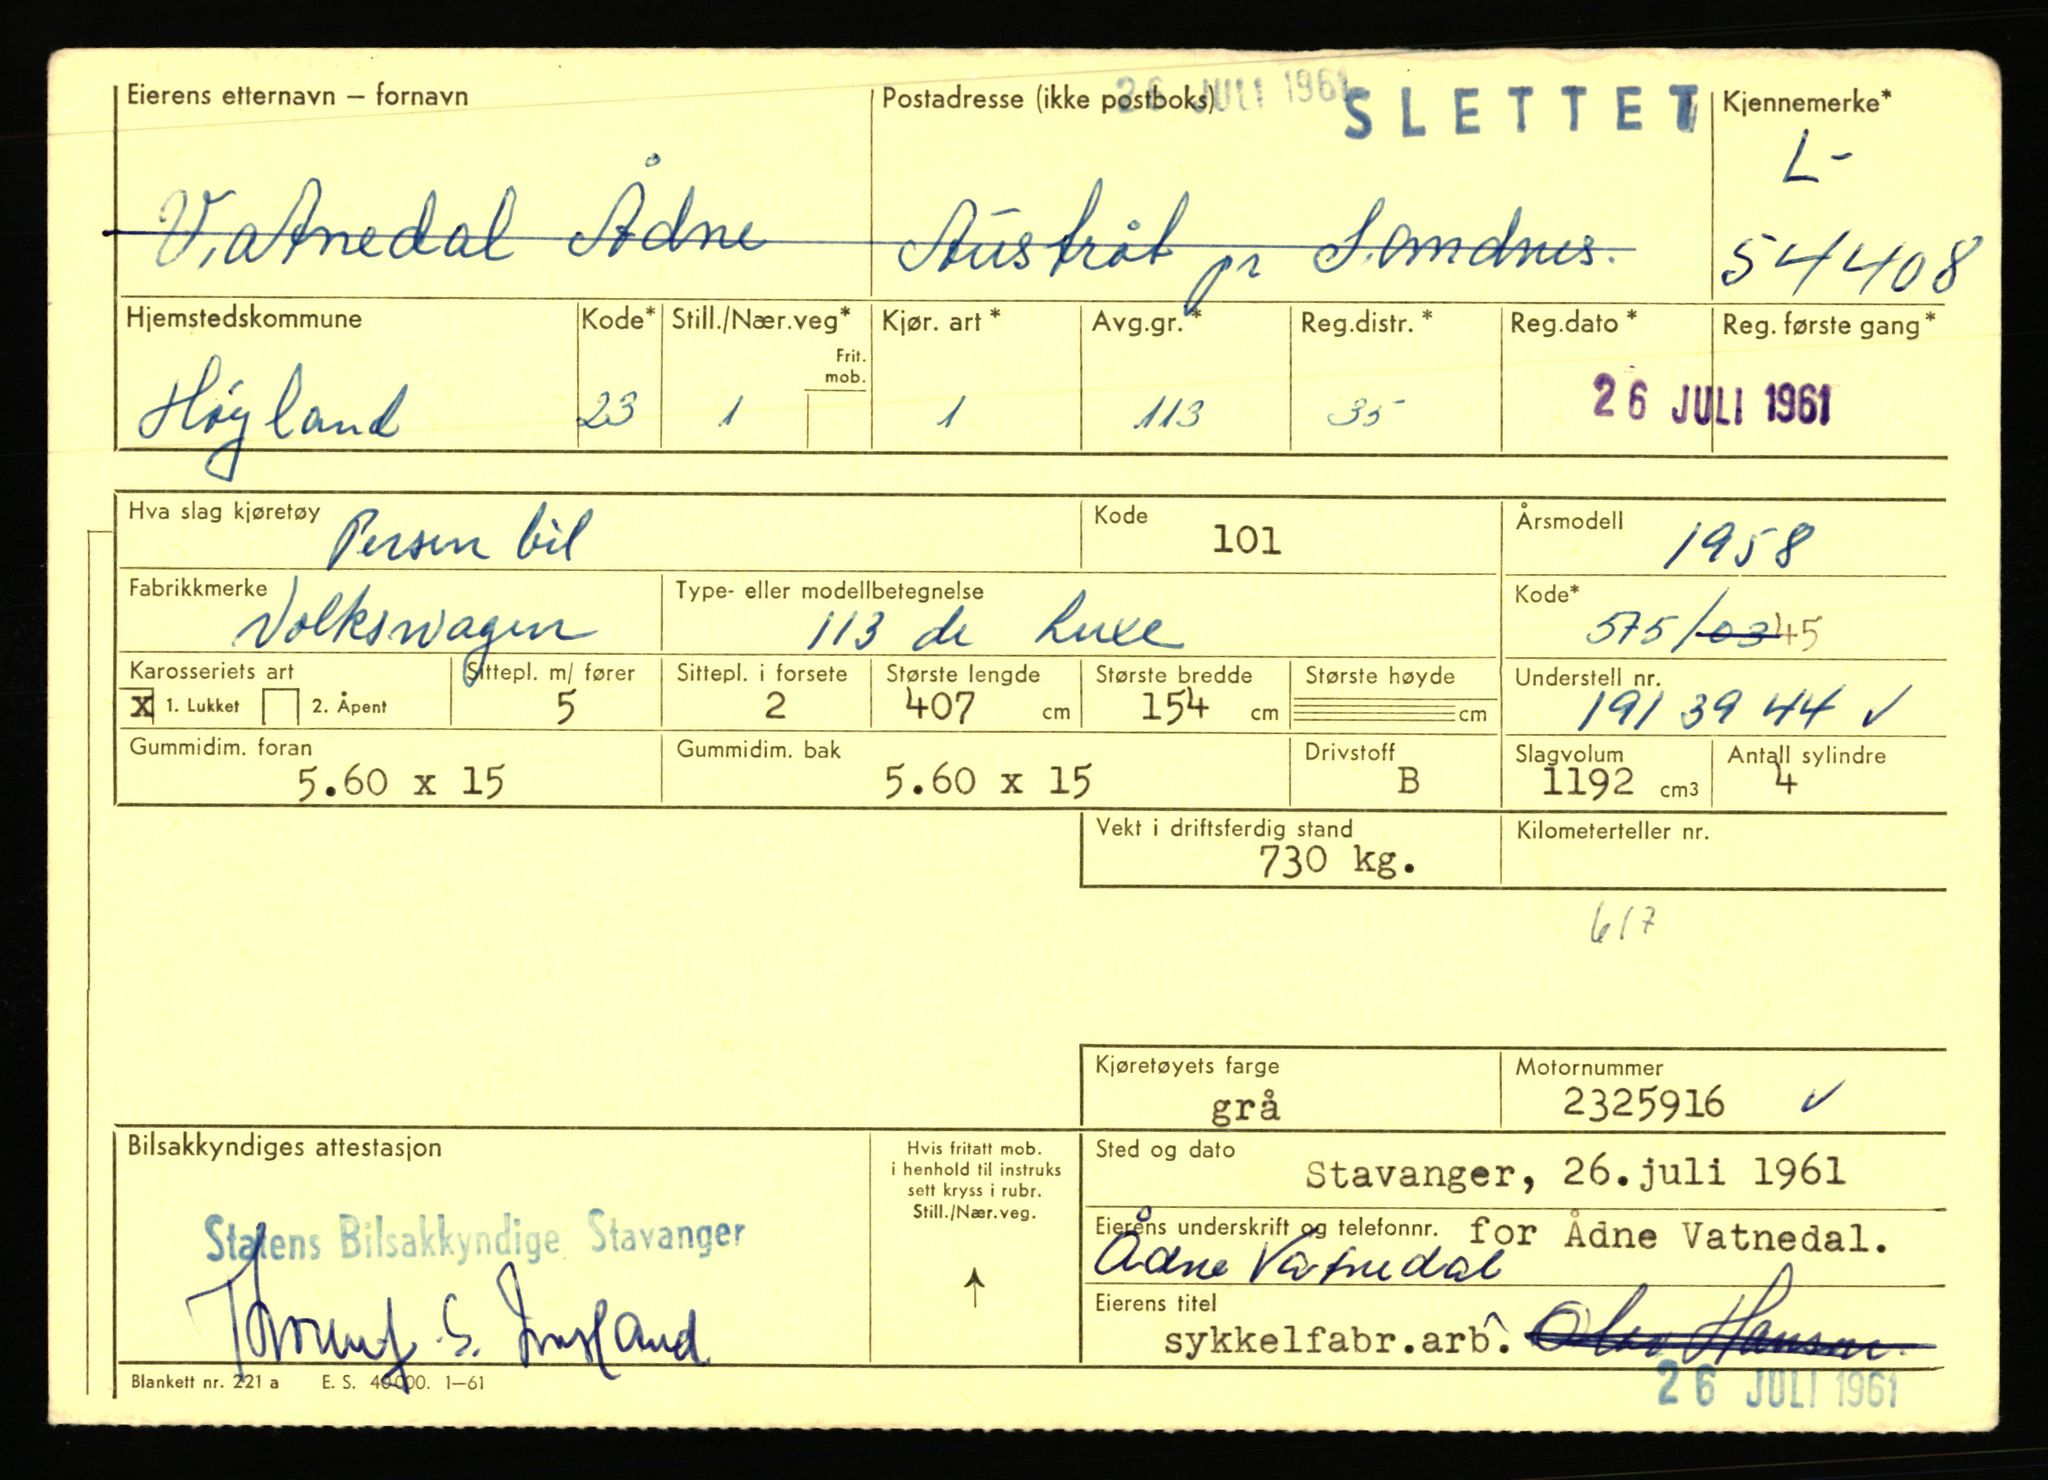 26 JULI 1961
SLETTET
Eierens etternavn – fornavn
Postadresse (ikke postboks)
Kjennemerke*
L-
Vatnedal Ådne
Austråt pr Sandnes.
54408
Hjemstedskommune
Kode*
Still./Nær.veg*
Frit. mob.
Kjør. art *
Avg.gr. *
Reg.distr. *
Reg.dato *
Reg. første gang*
Høyland
23
1
1
113
35
26 JULI 1961
Hva slag kjøretøy
Person bil
Kode
101
Årsmodell
1958
Fabrikkmerke
Volkswagen
Type- eller modellbetegnelse
113 de Luxe
Kode*
575/03 45
Karosseriets art
X 1. Lukket
2. Åpent
Sittepl. m/ fører
5
Sittepl. i forsete
2
Største lengde
407 cm
Største bredde
154 cm
Største høyde
cm
Understell nr.
191 39 44 ✓
Gummidim. foran
5.60 x 15
Gummidim. bak
5.60 x 15
Drivstoff
B
Slagvolum
1192 cm3
Antall sylindre
4
Vekt i driftsferdig stand
730 kg.
Kilometerteller nr.
617
Kjøretøyets farge
grå
Motornummer
2325916 ✓
Bilsakkyndiges attestasjon
Statens Bilsakkyndige Stavanger
Hvis fritatt mob.
i henhold til instruks
sett kryss i rubr.
Still./Nær.veg.
↑
Sted og dato
Stavanger, 26.juli 1961
Eierens underskrift og telefonnr. for Ådne Vatnedal.
Ådne Vatnedal
Eierens titel
sykkelfabr.arb.
Hansen
26 JULI 1961
Blankett nr. 221 a E. S. 40000. 1–61